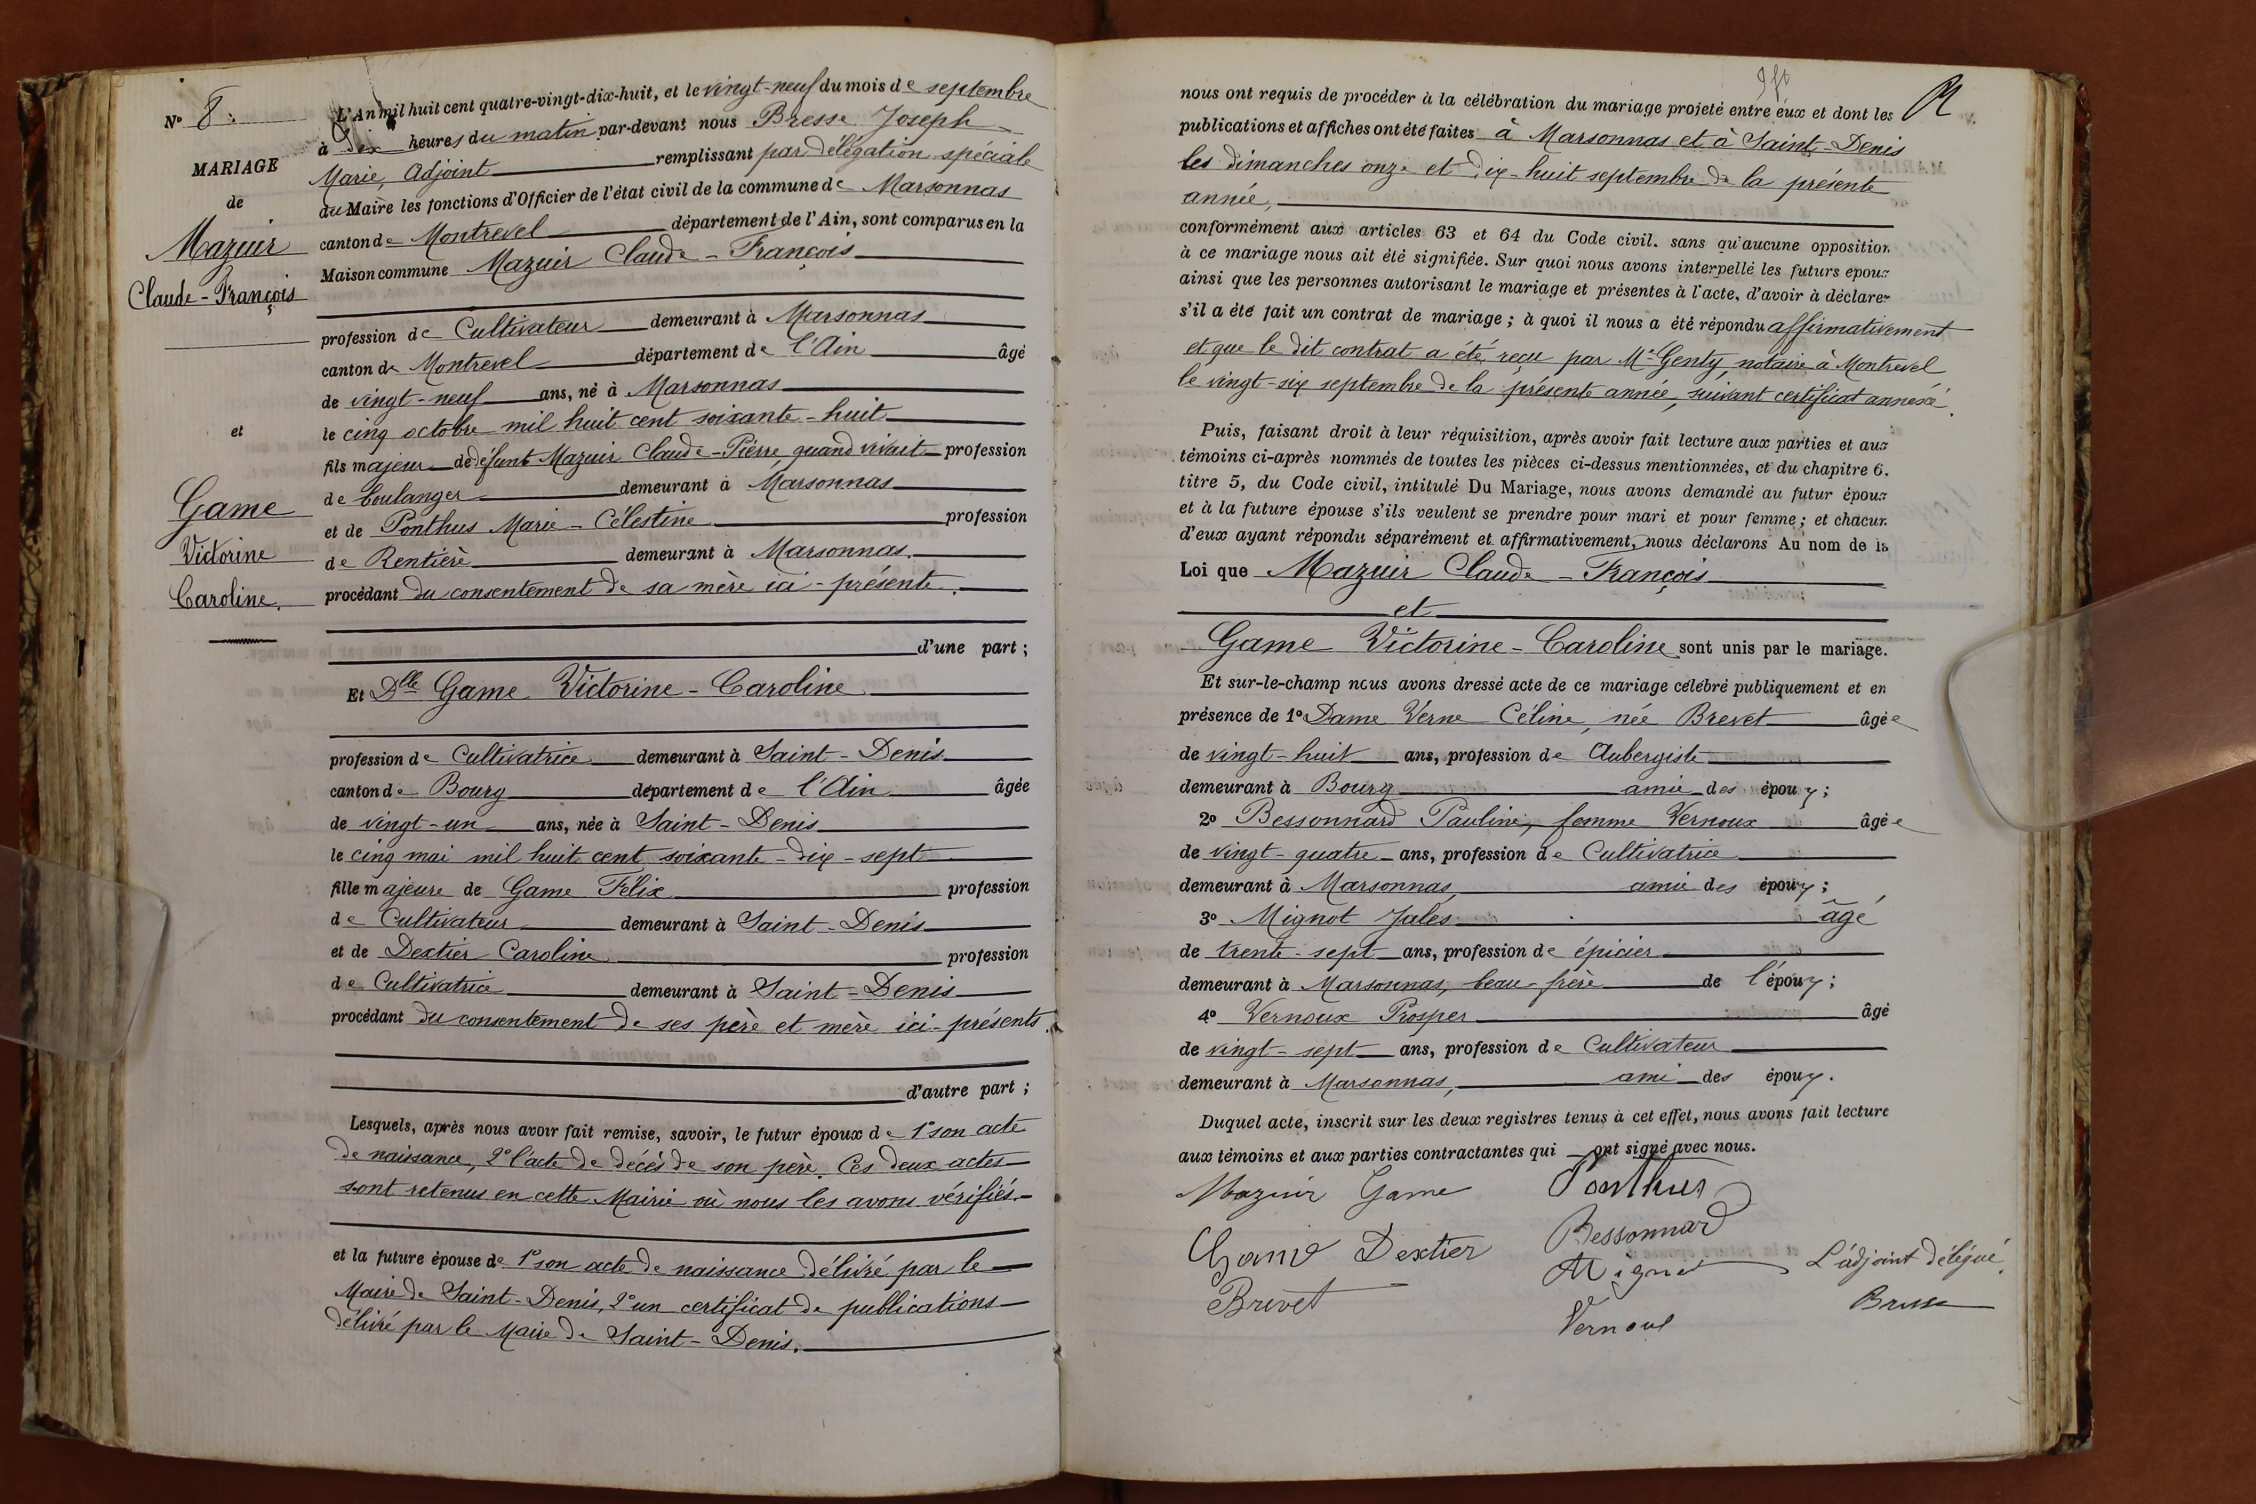 N° 8.
MARIAGE
de
Mazuir
Claude-François
et
Game
Victorine
Caroline.
L'An mil huit cent quatre-vingt-dix-huit, et le vingt-neuf du mois de septembre
à Dix heures du matin par-devant nous Bresse Joseph
Marie, Adjoint remplissant par délégation spéciale
du Maire les fonctions d'Officier de l'état civil de la commune de Marsonnas
canton de Montrevel département de l'Ain, sont comparus en la
Maison commune Mazuir Claude-François
profession de Cultivateur demeurant à Marsonnas
canton de Montrevel département de l'Ain âgé
de vingt-neuf ans, né à Marsonnas
le cinq octobre mil huit cent soixante-huit
fils majeur de défunt Mazuir Claude-Pierre quand vivait profession
de boulanger demeurant à Marsonnas
et de Ponthus Marie-Célestine profession
de Rentière demeurant à Marsonnas.
procédant du consentement de sa mère ici-présente.
d'une part ;
Et Dlle Game Victorine-Caroline
profession de Cultivatrice demeurant à Saint-Denis
canton de Bourg département de l'Ain âgée
de vingt-un ans, née à Saint-Denis
le cinq mai mil huit cent soixante-dix-sept
fille majeure de Game Félix profession
de Cultivateur demeurant à Saint-Denis
et de Dextier Caroline profession
de Cultivatrice demeurant à Saint-Denis
procédant du consentement de ses père et mère ici-présents.
d'autre part ;
Lesquels, après nous avoir fait remise, savoir, le futur époux de 1° son acte
de naissance, 2° l'acte de décès de son père. Ces deux actes
sont retenus en cette Mairie où nous les avons vérifiés.
et la future épouse de 1° son acte de naissance délivré par le
Maire de Saint-Denis, 2° un certificat de publications
délivré par le Maire de Saint-Denis.
nous ont requis de procéder à la célébration du mariage projeté entre eux et dont les
publications et affiches ont été faites à Marsonnas et à Saint-Denis
les dimanches onze et dix-huit septembre de la présente
année,
conformément aux articles 63 et 64 du Code civil. sans qu'aucune opposition
à ce mariage nous ait été signifiée. Sur quoi nous avons interpellé les futurs époux
ainsi que les personnes autorisant le mariage et présentes à l'acte, d'avoir à déclarer
s'il a été fait un contrat de mariage ; à quoi il nous a été répondu affirmativement
et que le dit contrat a été reçu par Me Genty, notaire à Montrevel
le vingt-six septembre de la présente année, suivant certificat annexé.
Puis, faisant droit à leur réquisition, après avoir fait lecture aux parties et aux
témoins ci-après nommés de toutes les pièces ci-dessus mentionnées, et du chapitre 6.
titre 5, du Code civil, intitulé Du Mariage, nous avons demandé au futur époux
et à la future épouse s'ils veulent se prendre pour mari et pour femme ; et chacun
d'eux ayant répondu séparément et affirmativement, nous déclarons Au nom de la
Loi que Mazuir Claude-François
et
Game Victorine-Caroline sont unis par le mariage.
Et sur-le-champ nous avons dressé acte de ce mariage célébré publiquement et en
présence de 1° Dame Verne Céline, née Brevet âgée
de vingt-huit ans, profession de Aubergiste
demeurant à Bourg amie des époux ;
2° Bessonnard Pauline, femme Vernoux âgée
de vingt-quatre ans, profession de Cultivatrice
demeurant à Marsonnas, amie des époux ;
3° Mignot Jules âgé
de trente-sept ans, profession de épicier
demeurant à Marsonnas, beau-frère de l'époux ;
4° Vernoux Prosper âgé
de vingt-sept ans, profession de Cultivateur
demeurant à Marsonnas, ami des époux.
Duquel acte, inscrit sur les deux registres tenus à cet effet, nous avons fait lecture
aux témoins et aux parties contractantes qui ont signé avec nous.
Mazuir Game Ponthus
Game Dextier Bessonnard
Brevet Mignot L'adjoint délégué,
Vernoux Bresse